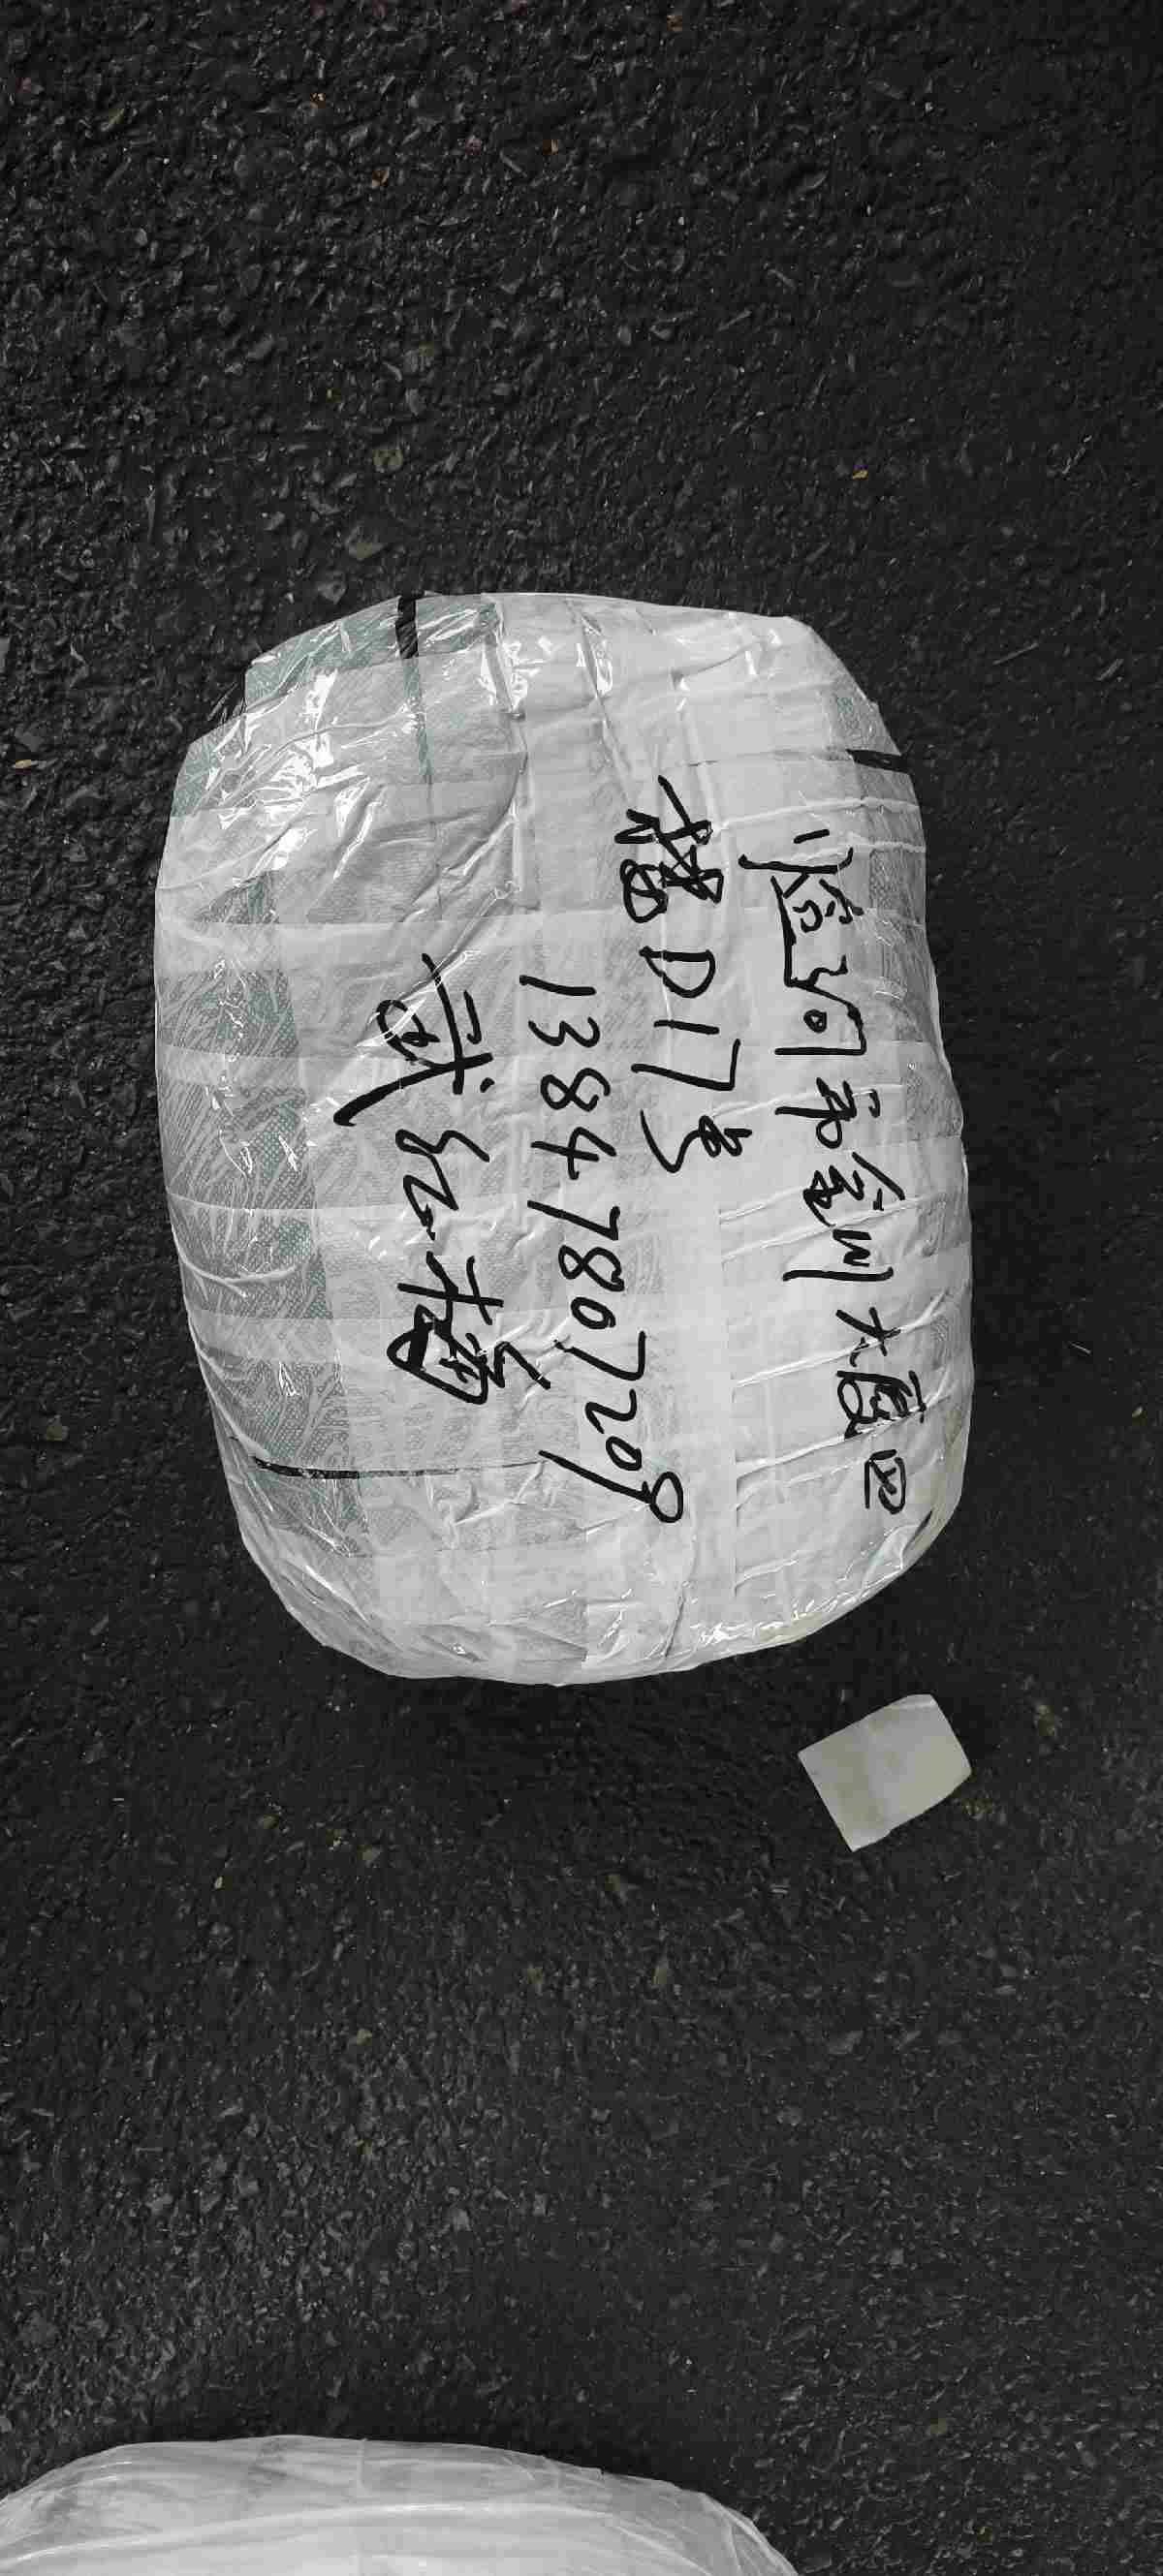 临河市金川大厦四
楼D17号
13847867208
戚红梅